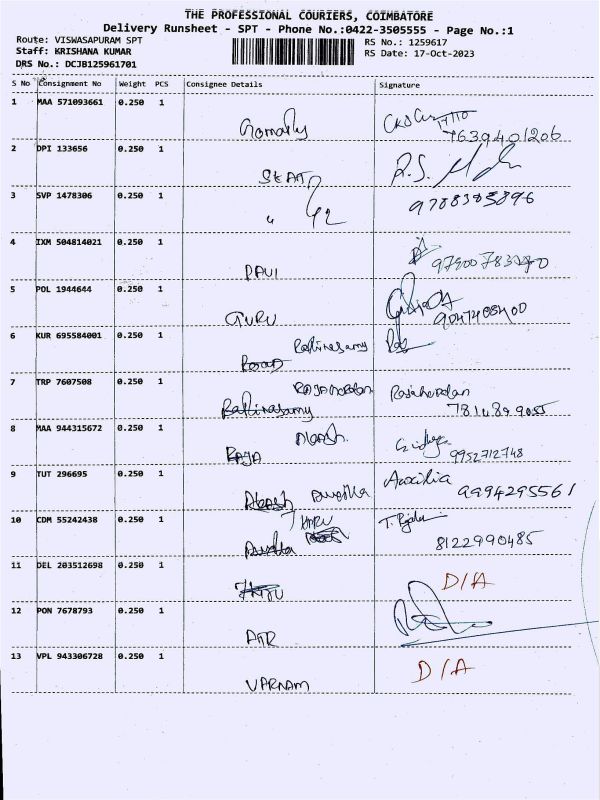 THE PROFESSIONAL COURIERS, COIMBATORE
Delivery Runsheet - SPT - Phone No.:0422-3505555 - Page No.:1
Route: VISWASAPURAM SPT
RS No.: 1259617
Staff: KRISHANA KUMAR
RS Date: 17-Oct-2023
DRS No.: DCJB125961701
S No Consignment No Weight PCS Consignee Details Signature
1 MAA 571093661 0.250 1
17/10
7639401206
2 DPI 133656 0.250 1
SEAT R.S.
3 SVP 1478306 0.250 1
9788385896
4 IXM 504814021 0.250 1
RAVI
5 POL 1944644 0.250 1
GURU
6 KUR 695584001 0.250 1
Rathinasamy
7 TRP 7607508 0.250 1
Rathinasamy
8 MAA 944315672 0.250 1
Akash
RAJA 9952712748
9 TUT 296695 0.250 1
Akash Auxilia
9994295561
10 CDM 55242438 0.250 1
8122990485
11 DEL 203512698 0.250 1
D/A
12 PON 7678793 0.250 1
ATR
13 VPL 943306728 0.250 1
D/A
VARNAM